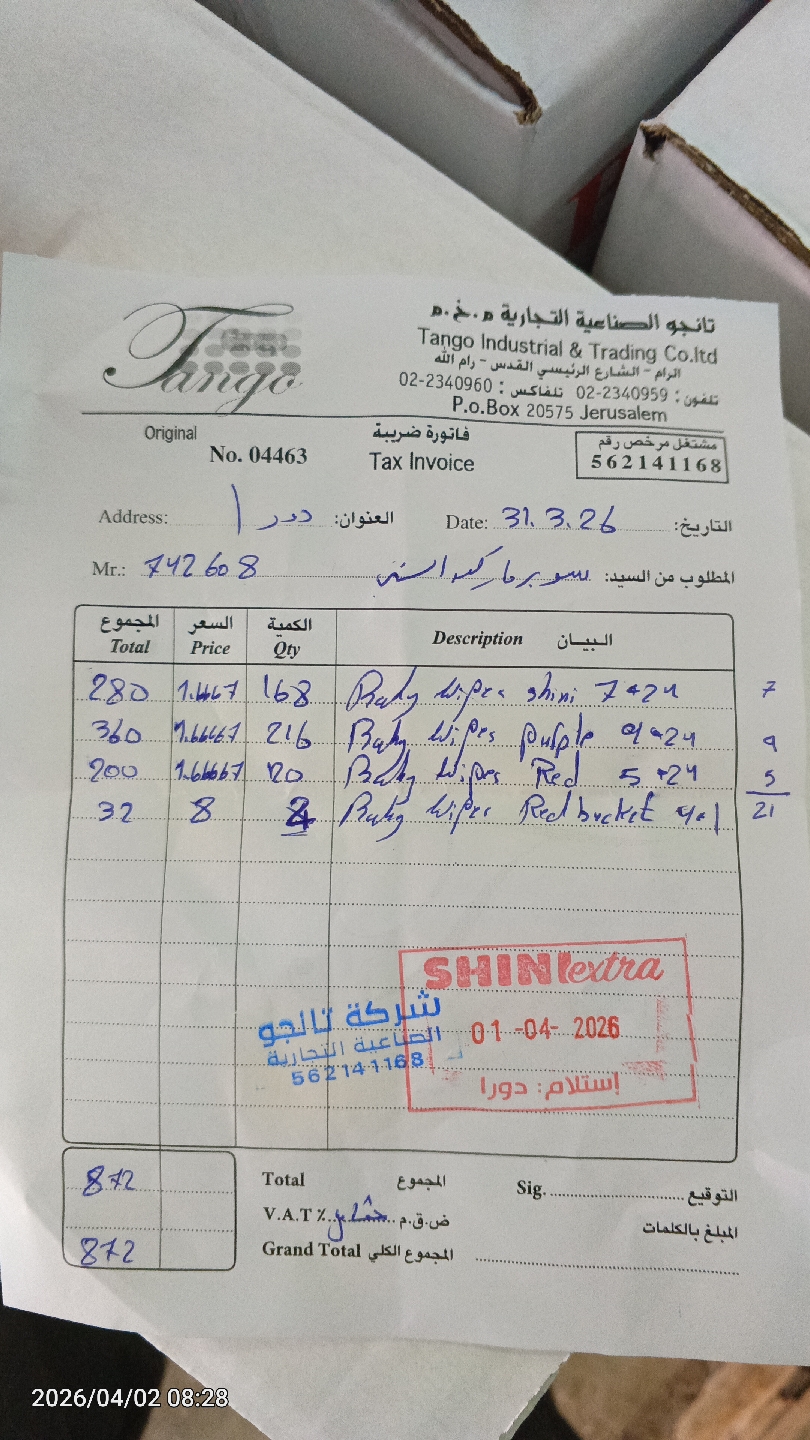 Tango
تانجو الصناعية التجارية م.خ.م
Tango Industrial & Trading Co.ltd
الرام - الشارع الرئيسي القدس - رام الله
تلفون: 02-2340959 تلفاكس: 02-2340960
P.o.Box 20575 Jerusalem
Original
No. 04463
فاتورة ضريبة
Tax Invoice
مشتغل مرخص رقم
562141168
Address: دورا العنوان:
Date: 31.3.26 التاريخ:
Mr.: 742608 سوبرماركت المطلوب من السيد:
المجموع السعر الكمية البيان
Total Price Qty Description
280 1.6667 168 Baby Wipes shini 7*24 7
360 1.66667 216 Baby Wipes purple 9*24 9
200 1.66667 120 Baby Wipes Red 5*24 5
32 8 4 Baby Wipes Red bucket 4*1 21
SHINI extra
01-04-2026
إستلام: دورا
شركة تانجو
الصناعية التجارية
562141168
872 Total المجموع
Sig. التوقيع
V.A.T٪ ض.ق.م
المبلغ بالكلمات
872 Grand Total المجموع الكلي
2026/04/02 08:28